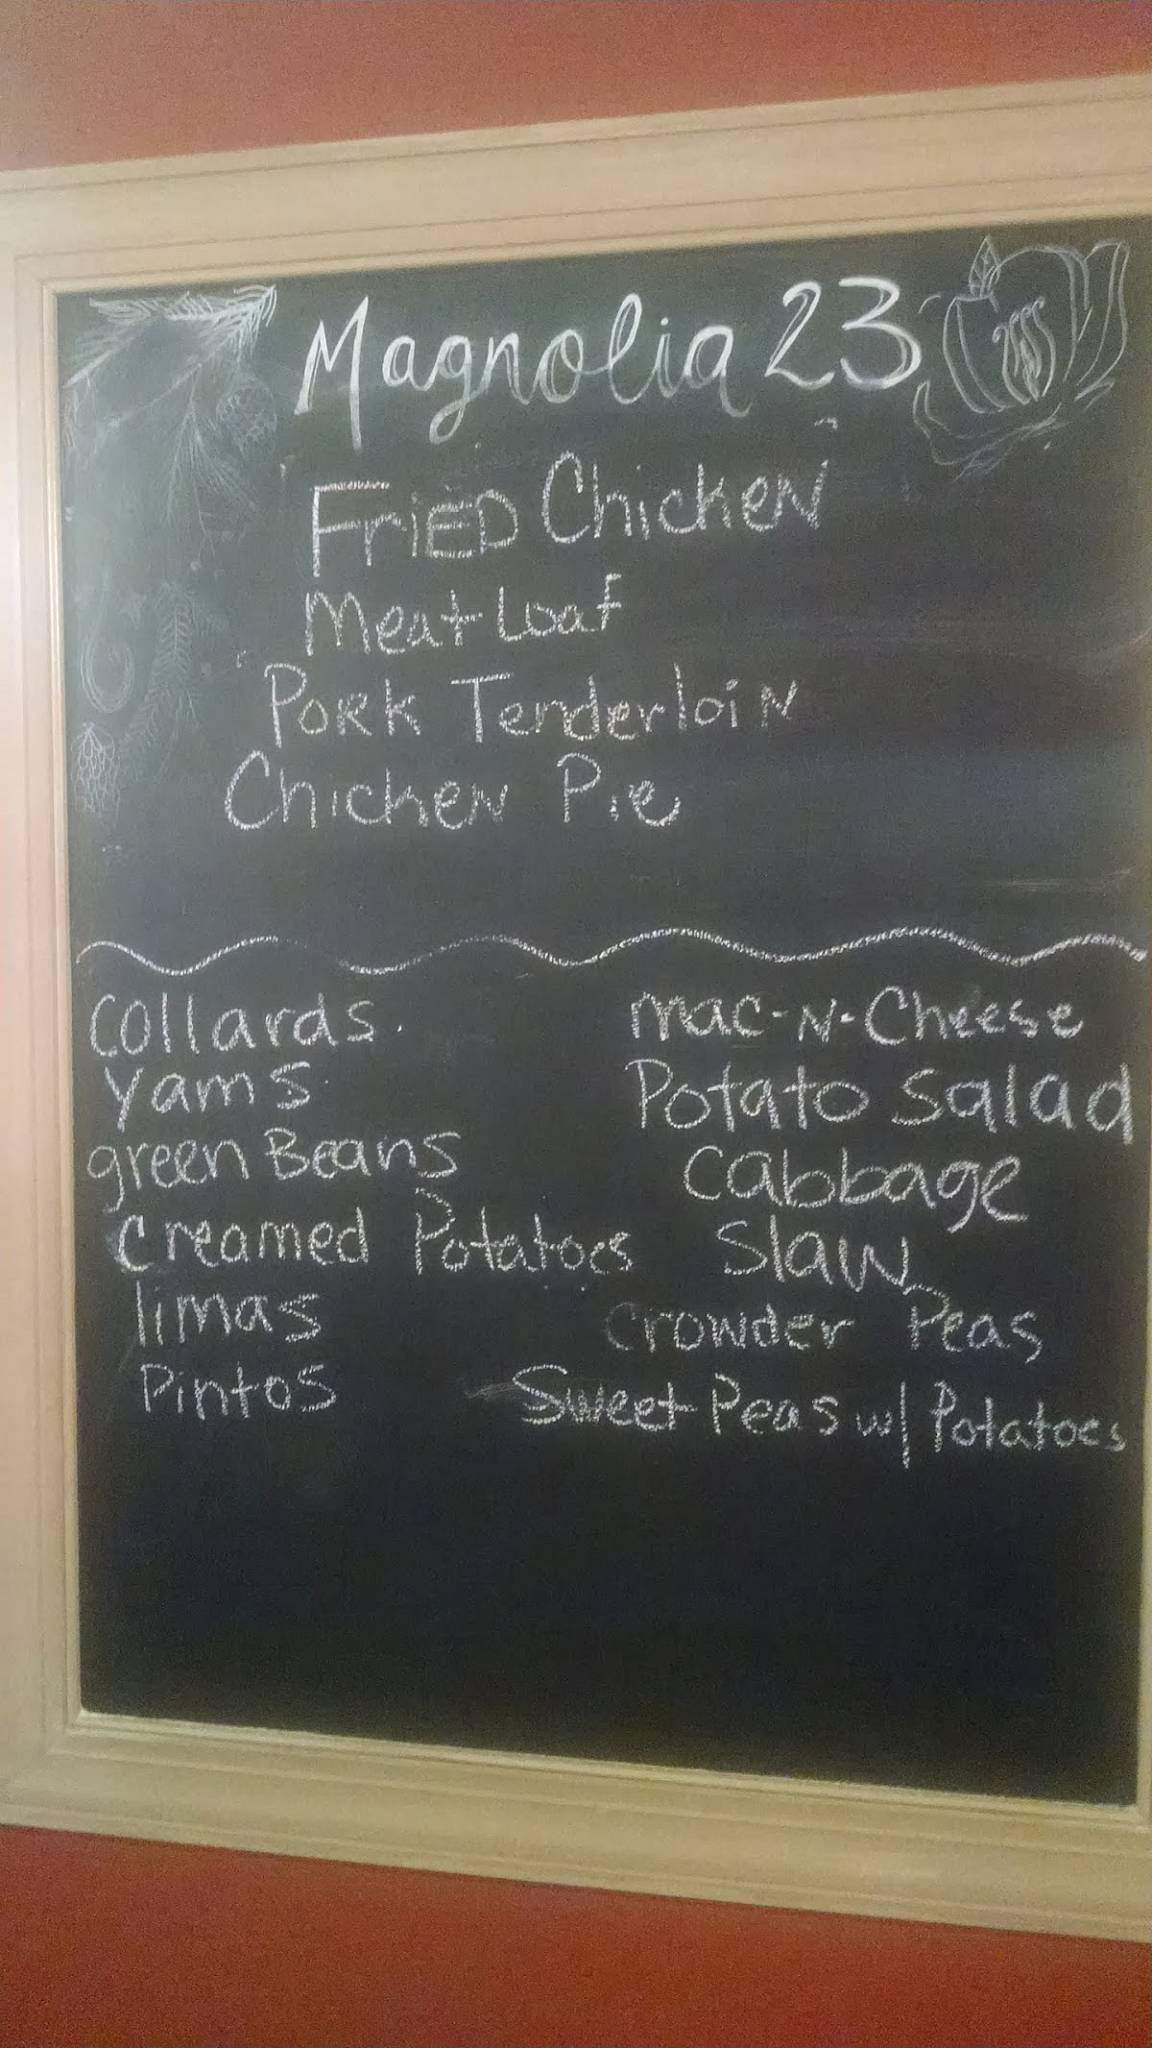 Magnolia 23
FRiED ChickeN
Meat Loaf
PoRk TenderloiN
ChickeN Pie
Collards.
yams
green Beans
Creamed Potatoes
limas
Pintos
mac-N-Cheese
Potato salad
Cabbage
Slaw
Crowder Peas
Sweet Peas w/ Potatoes